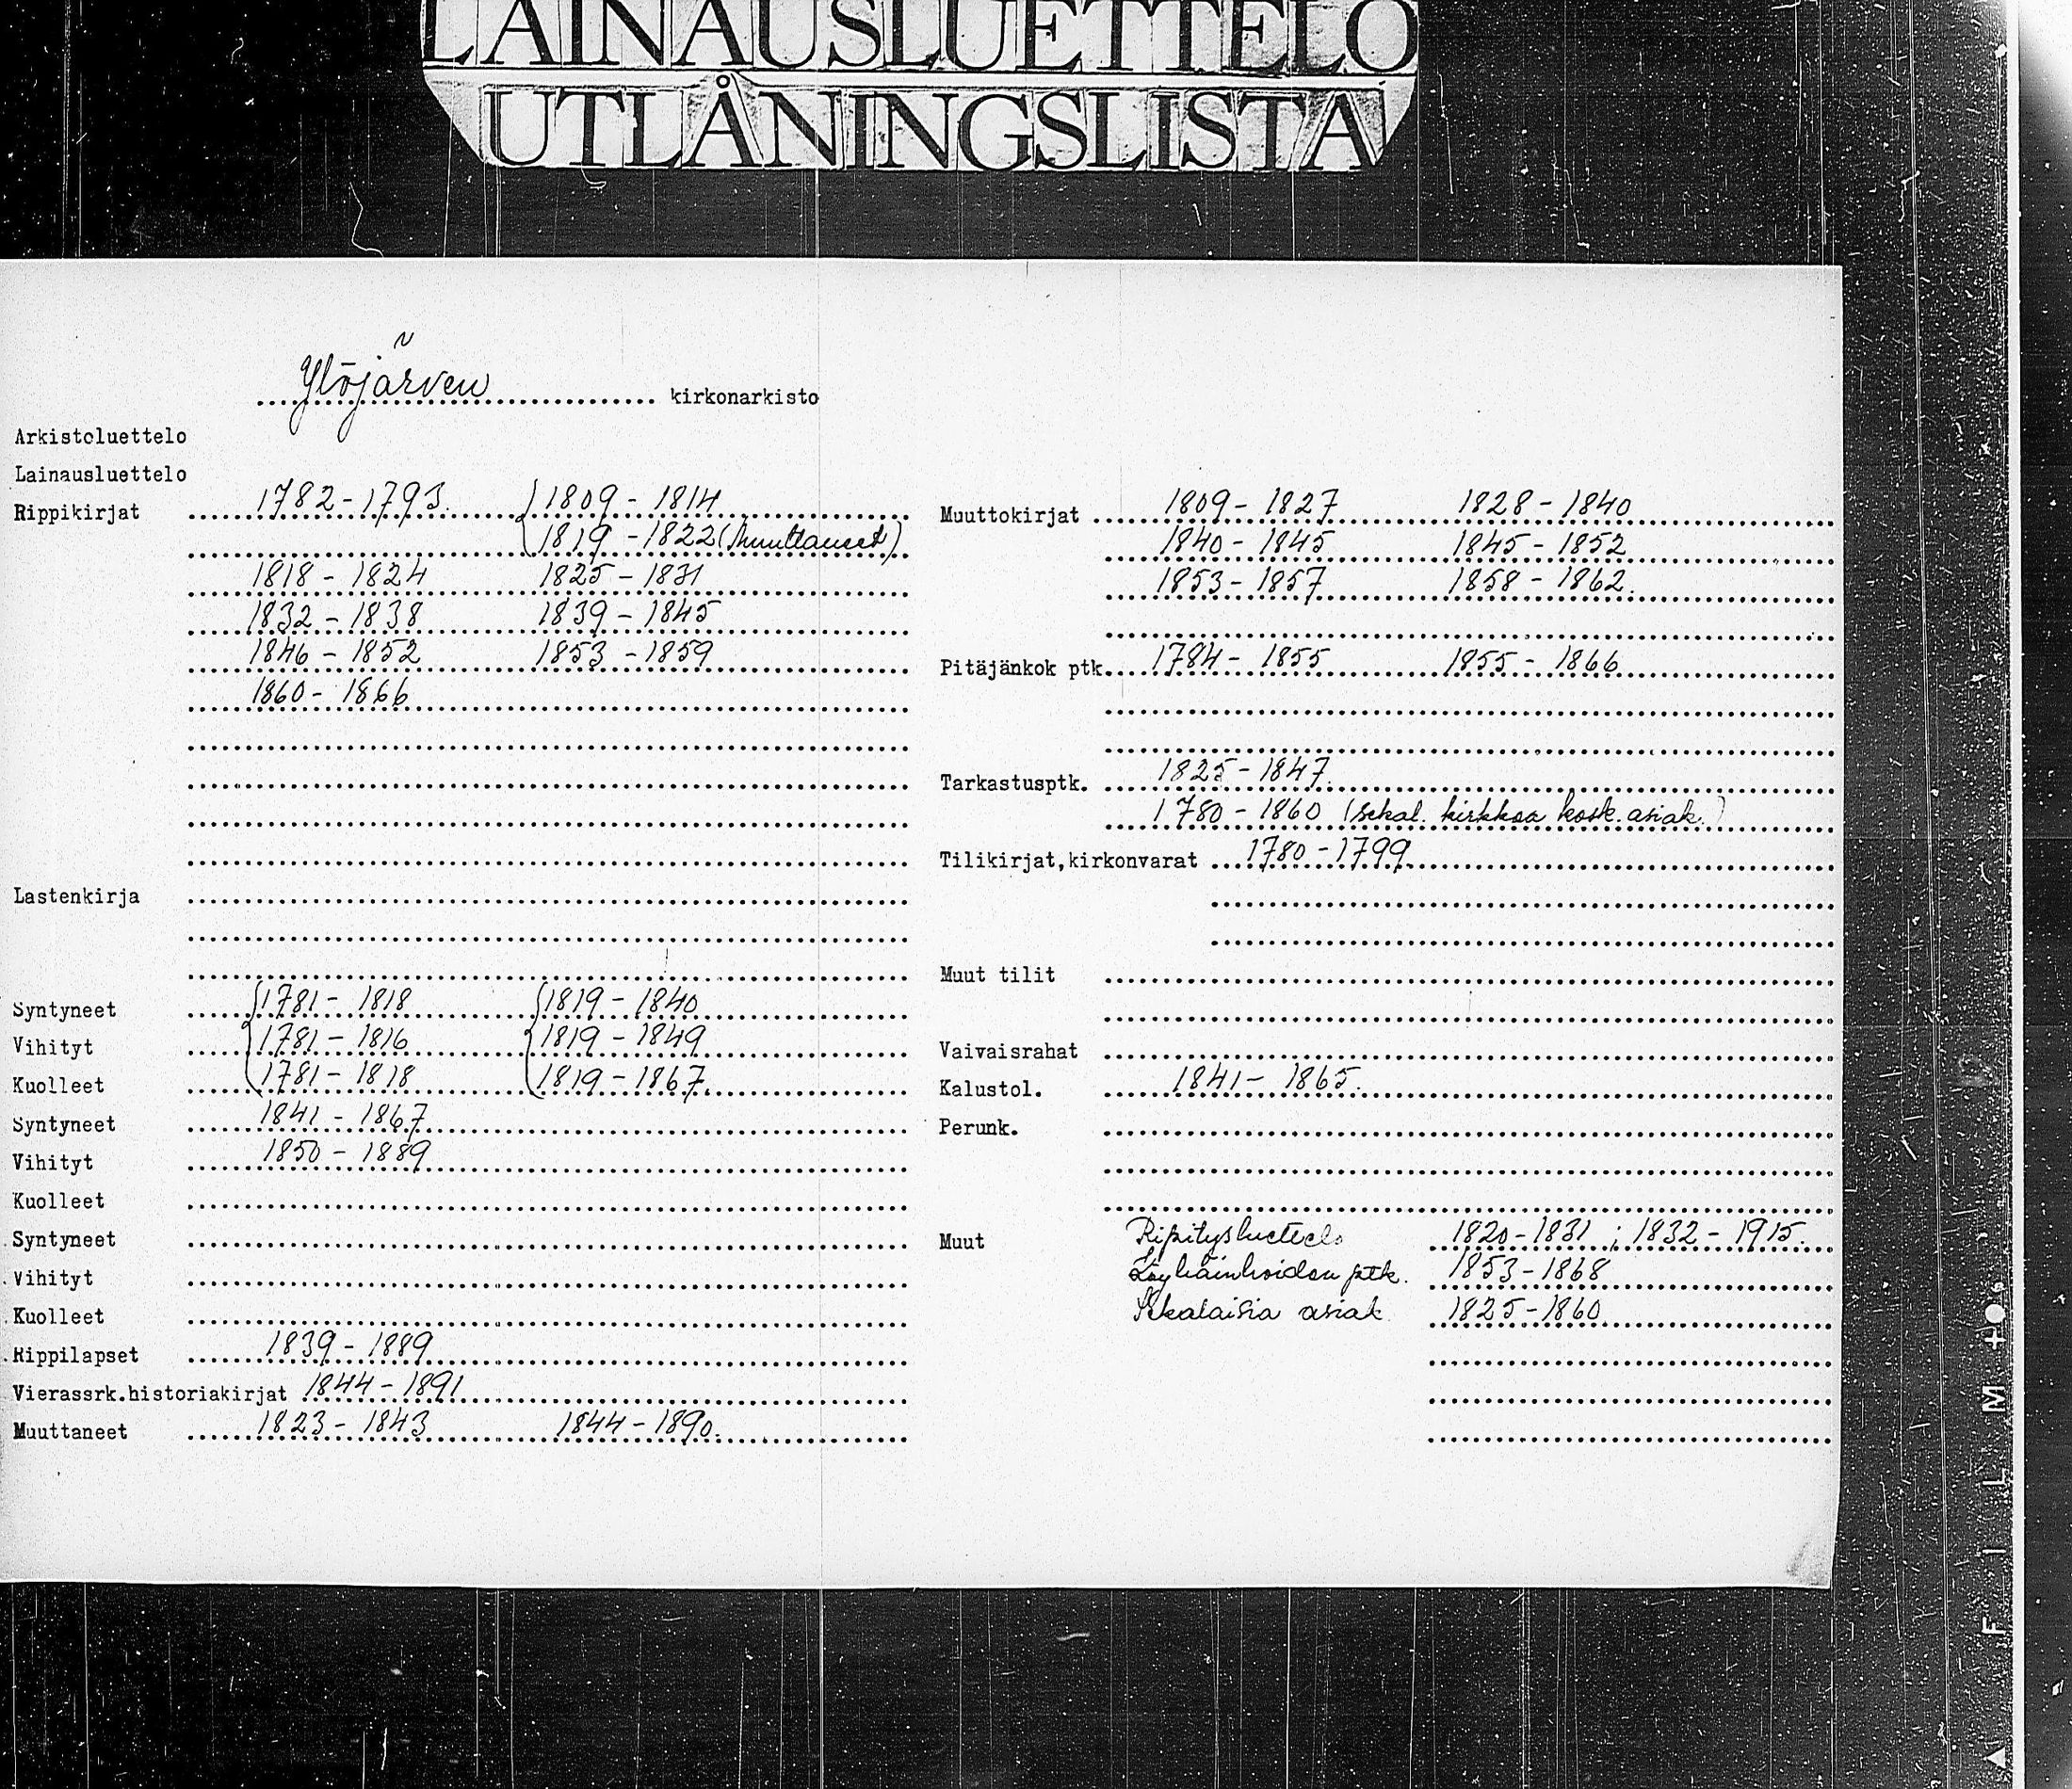 LAINAUSLUETTELO
UTLÅNINGSLISTA
Ylöjärven kirkonarkisto
Arkistoluettelo
Lainausluettelo
Rippikirjat 1782-1793. 1809 - 1814
1819 - 1822 (Muuttaneet)
1818 - 1824 1825 - 1831
1832 - 1838 1839 - 1845
1846 - 1852 1853 - 1859
1860 - 1866
Lastenkirja
Syntyneet 1781 - 1818 1819 - 1840
Vihityt 1781 - 1816 1819 - 1849
Kuolleet 1781 - 1818 1819 - 1867.
Syntyneet 1841 - 1867
Vihityt 1850 - 1889
Kuolleet
Syntyneet
Vihityt
Kuolleet
Rippilapset 1839 - 1889
Vierassrk.historiakirjat 1844 - 1891
Muuttaneet 1823 - 1843 1844 - 1890.
Muuttokirjat 1809 - 1827 1828 - 1840
1840 - 1845 1845 - 1852
1853 - 1857 1858 - 1862.
Pitäjänkok ptk. 1784 - 1855 1855 - 1866
Tarkastusptk. 1825 - 1847.
1780 - 1860 (sekal. kirkkoa kosk. asiak.)
Tilikirjat,kirkonvarat 1780 - 1799
Muut tilit
Vaivaisrahat
Kalustol. 1841 - 1865.
Perunk.
Muut Ripitysluettelo 1820-1831 ; 1832 - 1915.
Köyhäinhoidon ptk. 1853-1868
Sekalaisia asiak. 1825-1860
FILM